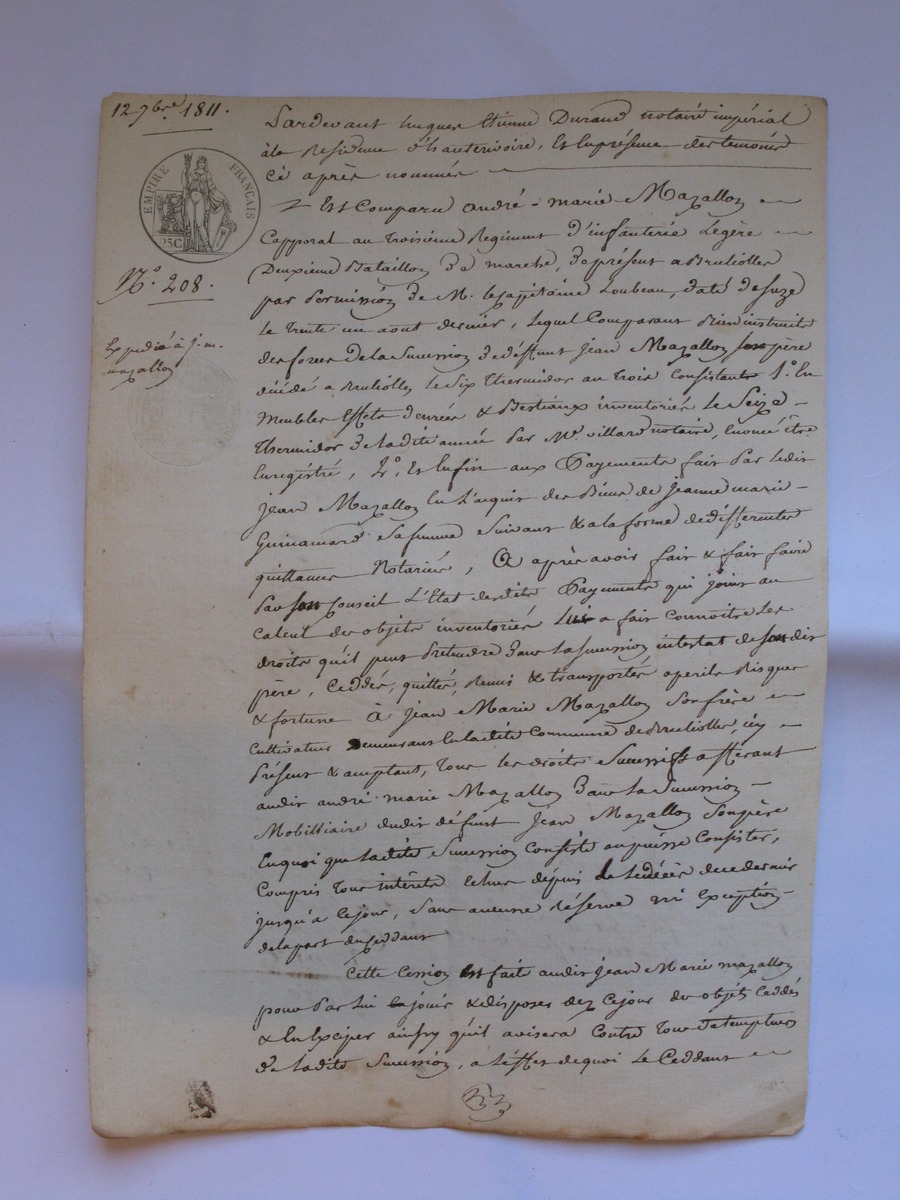 12 7bre 1811.
EMPIRE FRANÇAIS
25C
N.° 208.
Expédié à j. m.
mazallon
Pardevant hugues Etienne Durand notaire impérial
à la Résidence d'hauterivoire, Et En présence des temoins
cé après nommés
Est Comparu andré-marie Mazallon
Capporal au troisième Régiment d'infanterie Légère
Deuxième Bataillon de marche, de présent a Bruliolles
par Permission de M. le Capitaine Loubeau, daté de suze
Le trente un aout dernier, Lequel Comparant Bien instruit
des forces de la Succession de déffunt Jean Mazallon son père
décédé a Brulioles Le Six thermidor an trois Consistant 1.° En
Meubles Effets denrées & Bestiaux inventoriés Le Seize
thermidor de ladite année par M.e villard notaire, Enoncé être
Enregistré, 2.° Et Enfin aux Payements fait Par Ledit
jean Mazallon En L'acquit des Biens de jeanne marie
Guinamard Sa femme Suivant & a la forme de différentes
quittances Notariés, & après avoir fait & fait faire
Par son Conseil L'Etat desdits Payements qui joint au
Calcul des objets inventoriés Lui a fait Connoitre Les
droits qu'il peut Prétendre dans La Succession intestat de son dit
père, Ceddés, quitté, Remis & transportés a perils Risques
& fortune à Jean Marie Mazallon Son frère
Cultivateur Demeurant En ladite Commune de Brulioles, icy
Présent & acceptant, tous les droits Successifs afférant
audit andré marie Mazallon dans La Succession
Mobilliaire dudit défunt Jean Mazallon Son père
En quoi que Ladite Succession Consiste ou puisse Consister,
Compris tous intérets Echus dépuis le décès de ce dernier
jusqu'à Ce jour, Sans aucune réserve ni Exception
de la part du Ceddant
Cette Cession Est faite audit jean Marie mazallon
pour Par Lui En jouir & disposer dez Ce jour des objets Ceddés
& En Exciper ainsy qu'il avisera Contre tous detempteurs
de Ladite Succession, a L'effet de quoi Le Ceddant